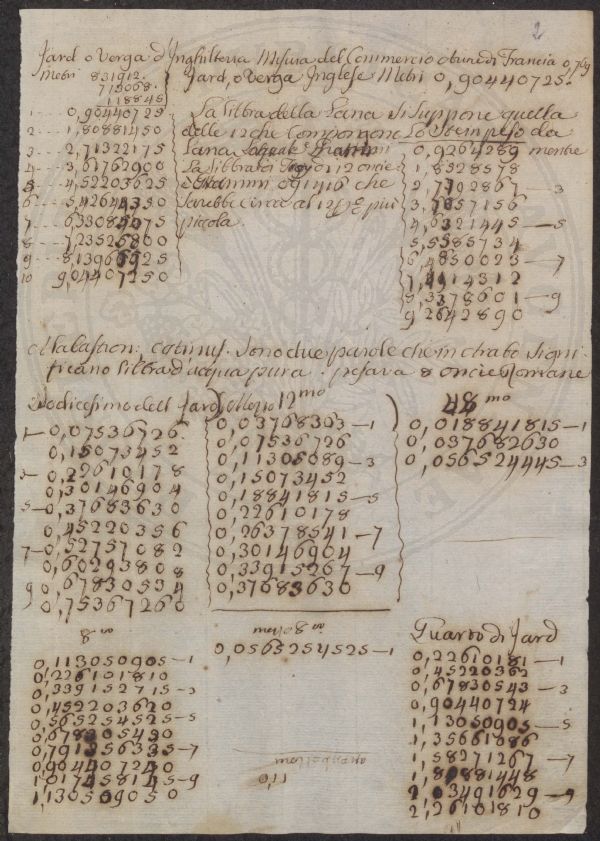 2
Jard o Verga d'Inghilterra Misura del Commercio
di Francia 0,769
Metri 831912.
713068.
118845
Jard, o Verga Inglese Metri 0,90440725.
1 - 0,90440725
2 - 1,80881450
3 - 2,71322175
4 - 3,61762900
5 - 4,52203625
6 - 5,42644350
7 - 6,33085075
8 - 7,23525800
9 - 8,13966525
10 9,04407250
La libbra della Lana si suppone quella
delle 12 che compongono Lo Stem peso da
Lana
La libbra di Troy di 12 oncie
che
sarebbe circa al più
piccola.
0,9264289 mentre
1,8528578
2,7792867 - 3
3,7057156
4,6321445 - 5
5,5585734
6,4850023 - 7
7,4114312
8,3378601 - 9
9,2642890
sono due parole che in
ficano libbra d'acqua pura. pesava 8 oncie Romane
Dodicesimo dell Jard
1 - 0,07536726
0,15073452
3 - 0,22610178
0,30146904
5 - 0,37683630
0,45220356
7 - 0,52757082
0,60293808
9 0,67830534
0,75367260
Mezzo 12mo
0,03768363 - 1
0,07536726
0,11305089 - 3
0,15073452
0,18841815 - 5
0,22610178
0,26378541 - 7
0,30146904
0,33915267 - 9
0,37683630
48mo
0,018841815 - 1
0,037682630
0,056524445 - 3
8vo
0,113050905 - 1
0,226101810
0,339152715 - 3
0,452203620
0,565254525 - 5
0,678305430
0,791356335 - 7
0,904407240
1,017458145 - 9
1,130509050
mezzo 8vo
0,0565254525 - 1
Quarto di Jard
0,22610181 - 1
0,45220362
0,67830543 - 3
0,90440724
1,13050905 - 5
1,35661086
1,58271267 - 7
1,80881448
2,03491629 - 9
2,26101810